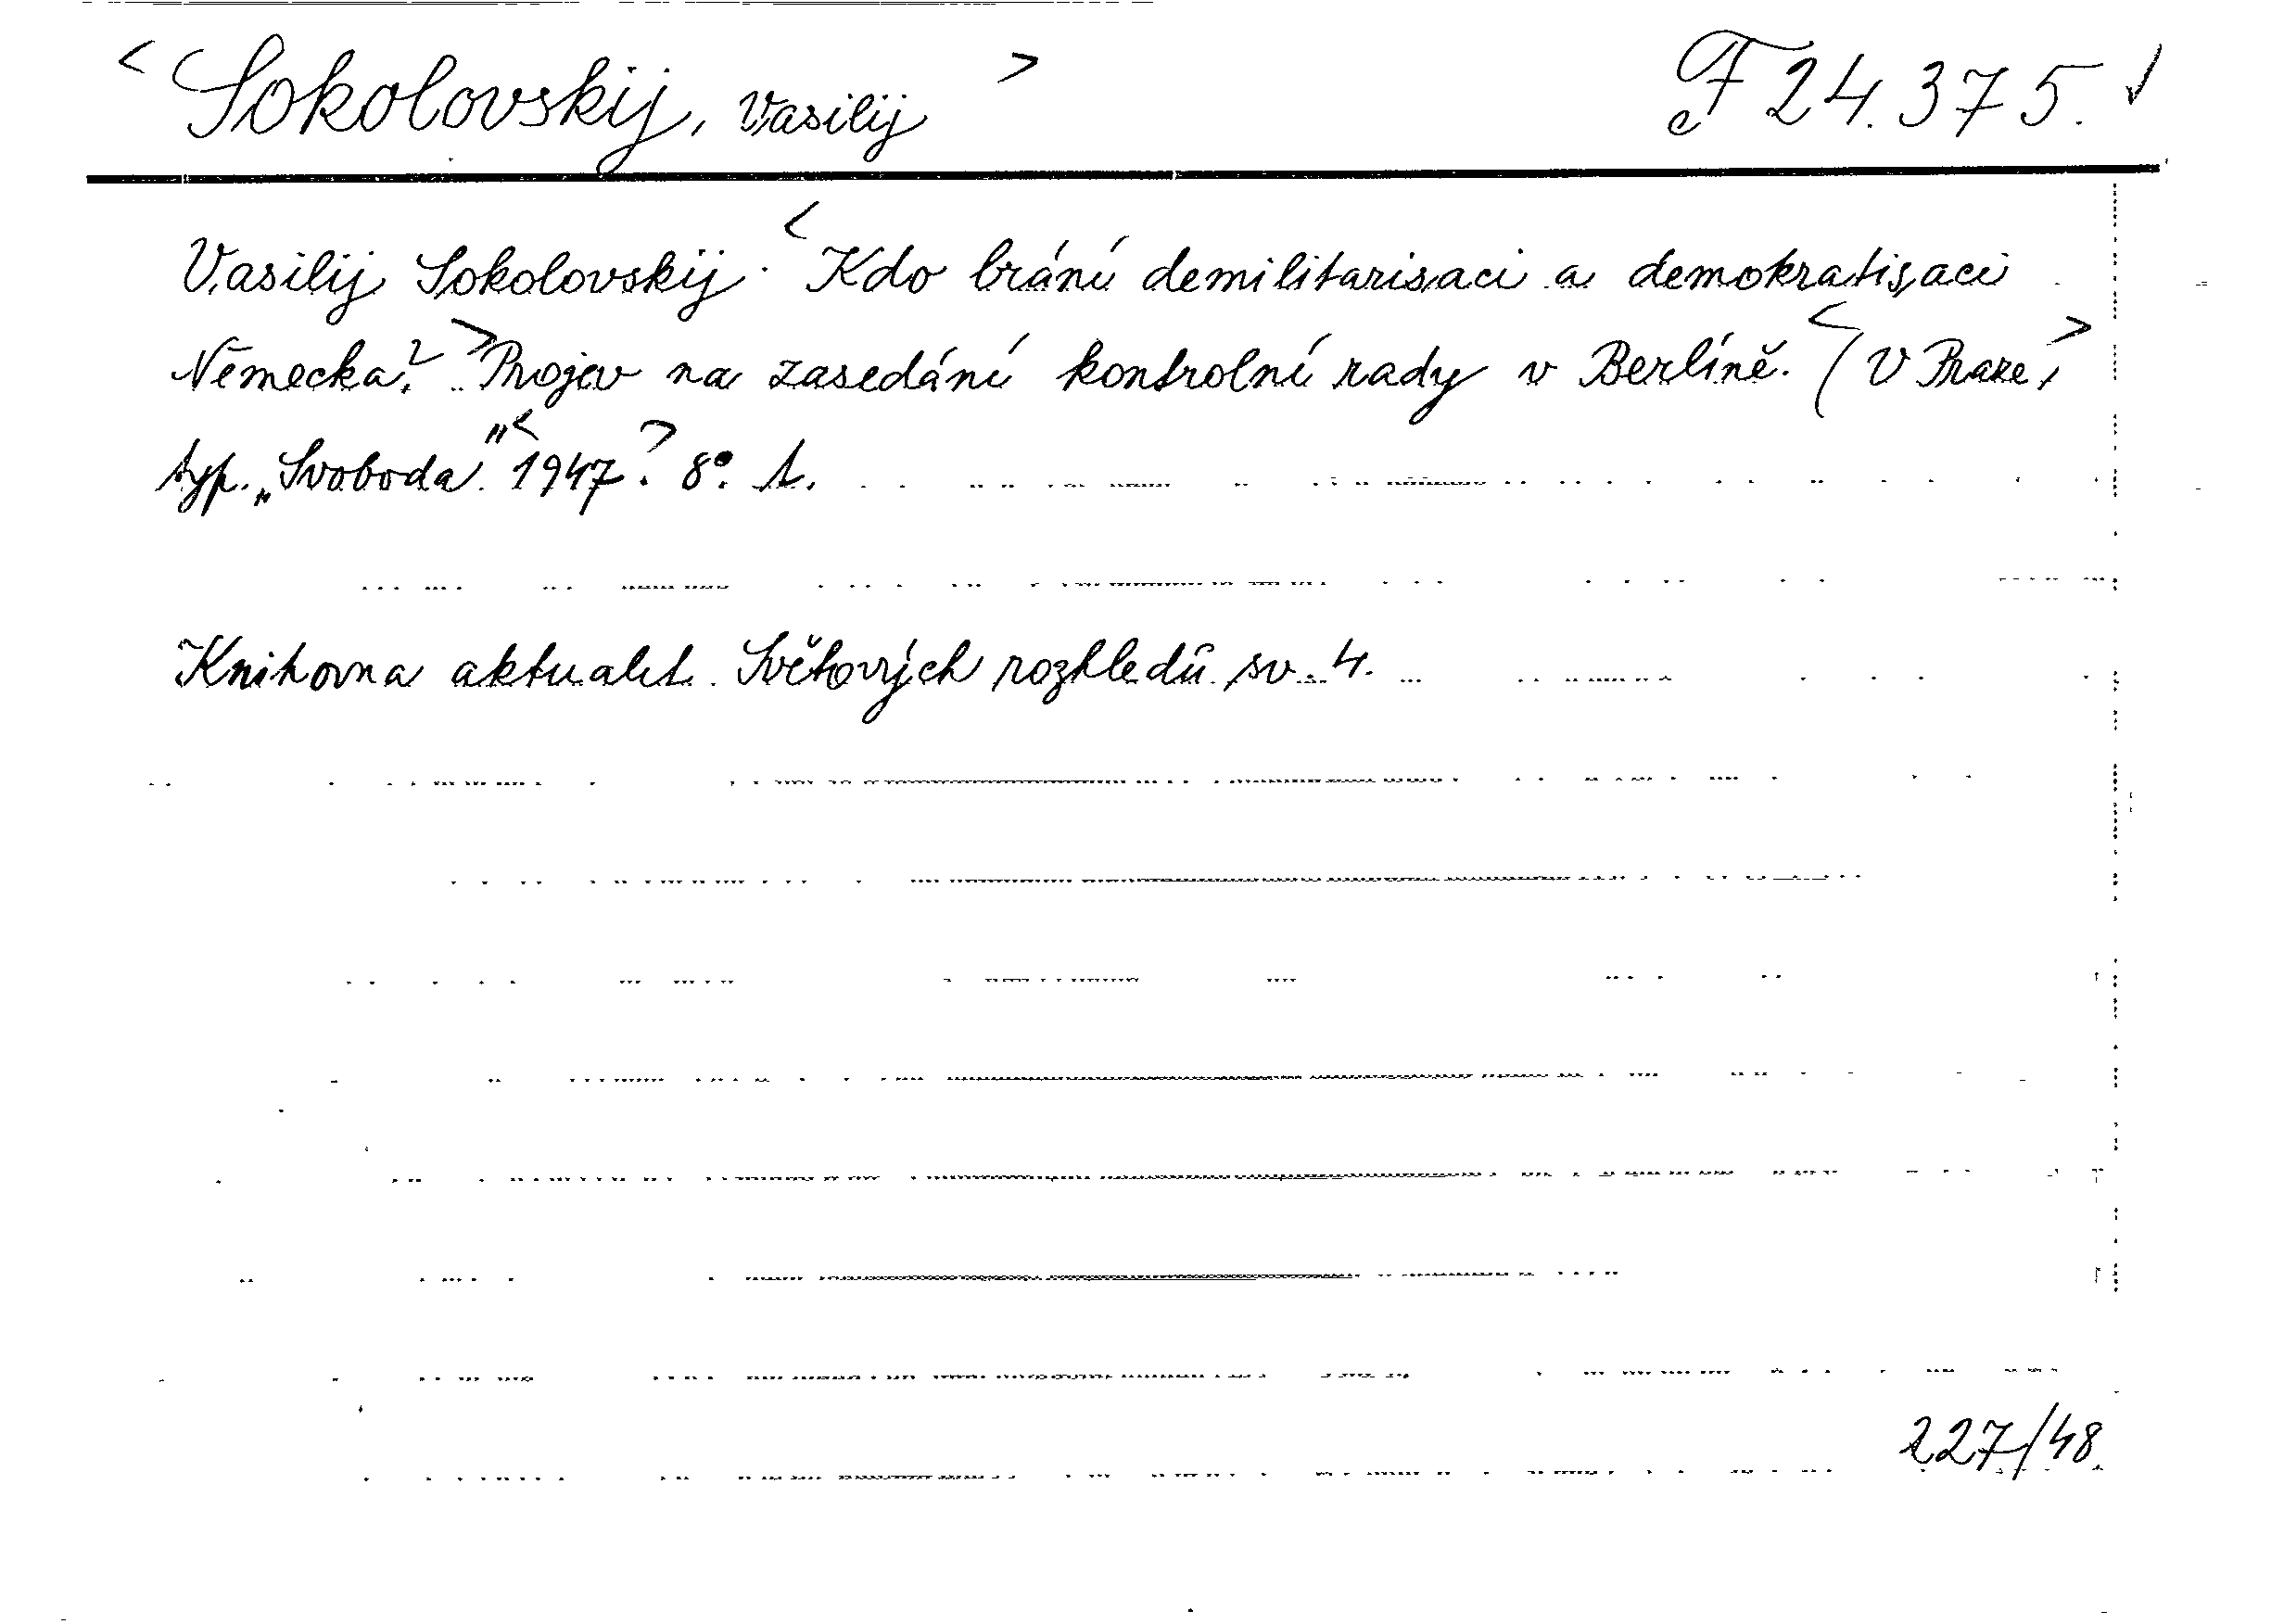 < Sokolovskij, Vasilij > F 24.375.
Vasilij Sokolovskij. < Kdo brání demilitarisaci a demokratisaci
Německa? > Projev na zasedání kontrolní rady v Berlíně. < (V Praze, >
typ. „Svoboda" < 1947. > 8° 1.
Knihovna aktualit Světových rozhledů sv. 4.
227/48